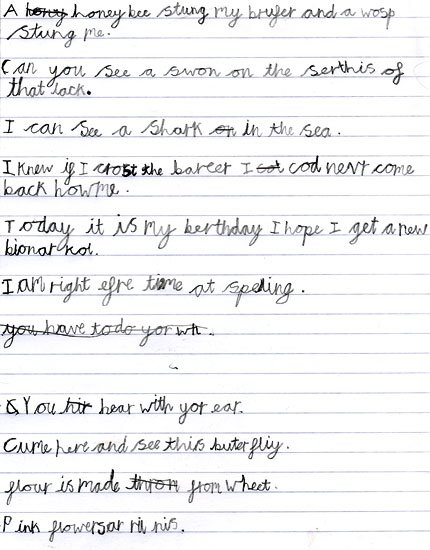 A honey honey bee stung my brufer and a wosp
stung me.
Can you see a swon on the serthis of
that lack.
I can see a shark on in the sea.
I knew if I crost the bareer I cod nevr come
back howme.
Today it is my berthday I hope I get a new
I am right efre time at spelling.
you have to do yor wh.
You hir hear with yor ear.
Cume here and see this buterfliy.
flour is made thron from wheet.
Pink flowers ar ril nis.